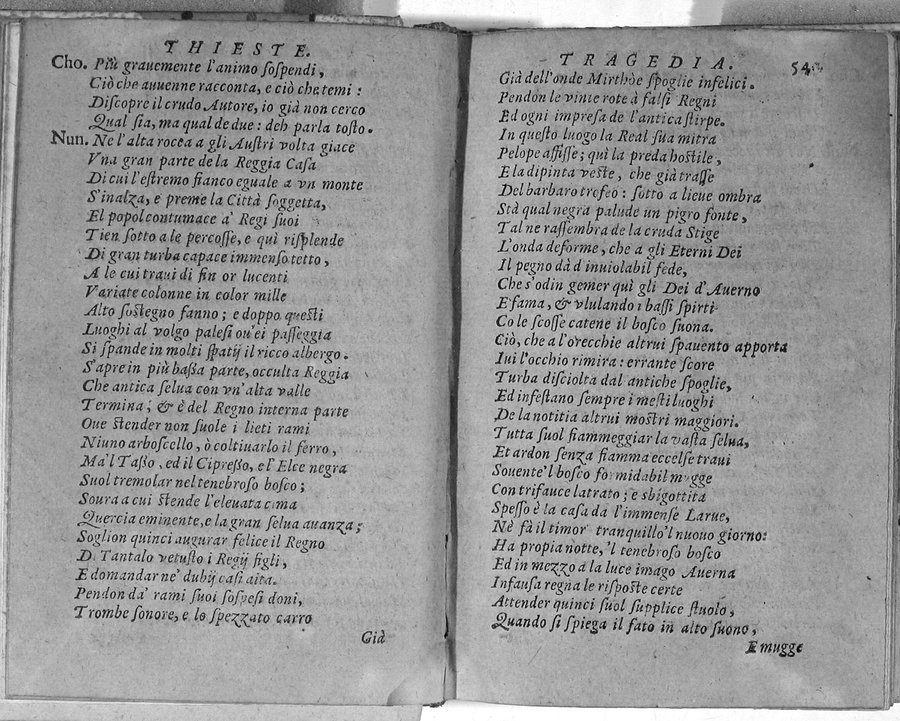 THIESTE.
Cho. Più grauemente l'animo ſoſpendi,
Ciò che auuenne racconta, e ciò che temi:
Diſcopre il crudo Autore, io già non cerco
Qual ſia, ma qual de due: deh parla toſto.
Nun. Ne l'alta rocca a gli Auſtri volta giace
Vna gran parte de la Reggia Caſa
Di cui l'eſtremo fianco eguale a vn monte
S'inalza, e preme la Città ſoggetta,
El popol contumace a' Regi ſuoi
Tien ſotto a le percoſſe, e quì riſplende
Di gran turba capace immenſo tetto,
A le cui traui di fin or lucenti
Variate colonne in color mille
Alto ſoſtegno fanno; e doppo queſti
Luoghi al volgo paleſi ou'ei paſſeggia
Si ſpande in molti ſpatij il ricco albergo.
S'apre in più baſſa parte, occulta Reggia
Che antica ſelua con vn'alta valle
Termina; & è del Regno interna parte
Oue ſtender non ſuole i lieti rami
Niuno arboſcello, ò coltiuarlo il ferro,
Ma'l Taſſo, ed il Cipreſſo, e l'Elce negra
Suol tremolar nel tenebroſo boſco;
Soura a cui ſtende l'eleuata cima
Quercia eminente, e la gran ſelua auanza;
Soglion quinci augurar felice il Regno
Di Tantalo vetuſto i Regij figli,
E domandar ne' dubij caſi aita.
Pendon da' rami ſuoi ſoſpeſi doni,
Trombe ſonore, e lo ſpezzato carro
Già
TRAGEDIA. 54
Già dell'onde Mirthòe ſpoglie infelici.
Pendon le vinte rote à falſi Regni
Ed ogni impreſa de l'antica ſtirpe.
In queſto luogo la Real ſua mitra
Pelope affiſſe; quì la preda hoſtile,
E la dipinta veſte, che già traſſe
Del barbaro trofeo: ſotto a lieue ombra
Stà qual negra palude un pigro fonte,
Tal ne raſſembra de la cruda Stige
L'onda deforme, che a gli Eterni Dei
Il pegno dà d'inuiolabil fede,
Che s'odin gemer quì gli Dei d'Auerno
E fama, & vlulando i baſſi ſpirti
Co le ſcoſſe catene il boſco ſuona.
Ciò, che a l'orecchie altrui ſpauento apporta
Iui l'occhio rimira: errante ſcore
Turba diſciolta dal antiche ſpoglie,
Ed infeſtano ſempre i meſti luoghi
De la notitia altrui moſtri maggiori.
Tutta ſuol fiammeggiar la vaſta ſelua,
Et ardon ſenza fiamma eccelſe traui
Souente'l boſco formidabil mugge
Con trifauce latrato; e sbigottita
Speſſo è la caſa da l'immenſe Larue,
Nè fà il timor tranquillo'l nuouo giorno:
Ha propia notte, 'l tenebroſo boſco
Ed in mezzo a la luce imago Auerna
Infauſa regna le riſpoſte certe
Attender quinci ſuol ſupplice ſtuolo,
Quando ſi ſpiega il fato in alto ſuono,
E mugge